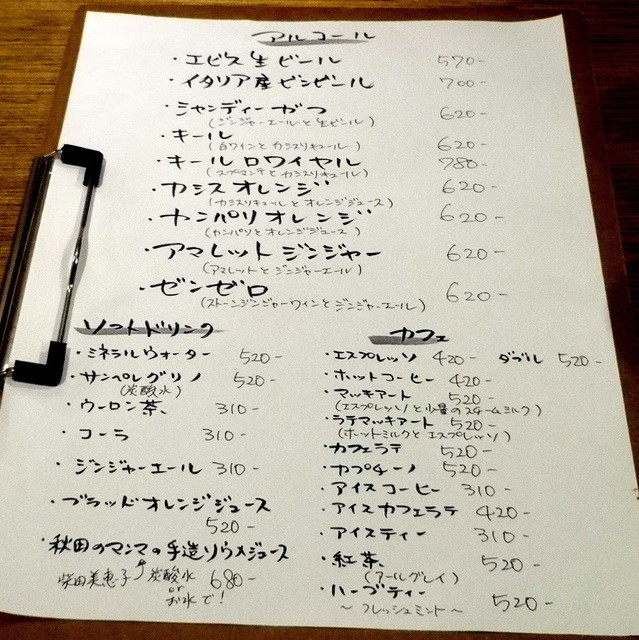 アルコール
・エビス生ビール 570-
・イタリア産ビンビール 700-
・シャンディーガフ 620-
(ジンジャーエールと生ビール)
・キール 620-
(白ワインとカシスリキュール)
・キールロワイヤル 780-
(スプマンテとカシスリキュール)
・カシスオレンジ 620-
(カシスリキュールとオレンジジュース)
・カンパリオレンジ 620-
(カンパリとオレンジジュース)
・アマレットジンジャー 620-
(アマレットとジンジャーエール)
・ゼンゼロ 620-
(ストーンジンジャーワインとジンジャーエール)
ソフトドリンク
・ミネラルウォーター 520-
・サンペレグリノ 520-
(炭酸水)
・ウーロン茶、 310-
・コーラ 310-
・ジンジャーエール 310-
・ブラッドオレンジジュース
520-
・秋田のマンマの手造りウメジュース
柴田美恵子 炭酸水 680-
or
お水で!
カフェ
・エスプレッソ 420- ダブル 520-
・ホットコーヒー 420-
・マッキアート 520-
(エスプレッソと少量のスチームミルク)
・ラテマッキアート 520-
(ホットミルクとエスプレッソ)
・カフェラテ 520-
・カプチーノ 520-
・アイスコーヒー 310-
・アイスカフェラテ 420-
・アイスティー 310-
・紅茶、 520-
(アールグレイ)
・ハーブティー 520-
～フレッシュミント～